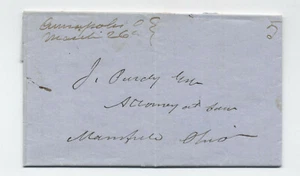 Annapolis O
March 26
5
J. Purdy Esq
Attorney at Law
Mansfield Ohio